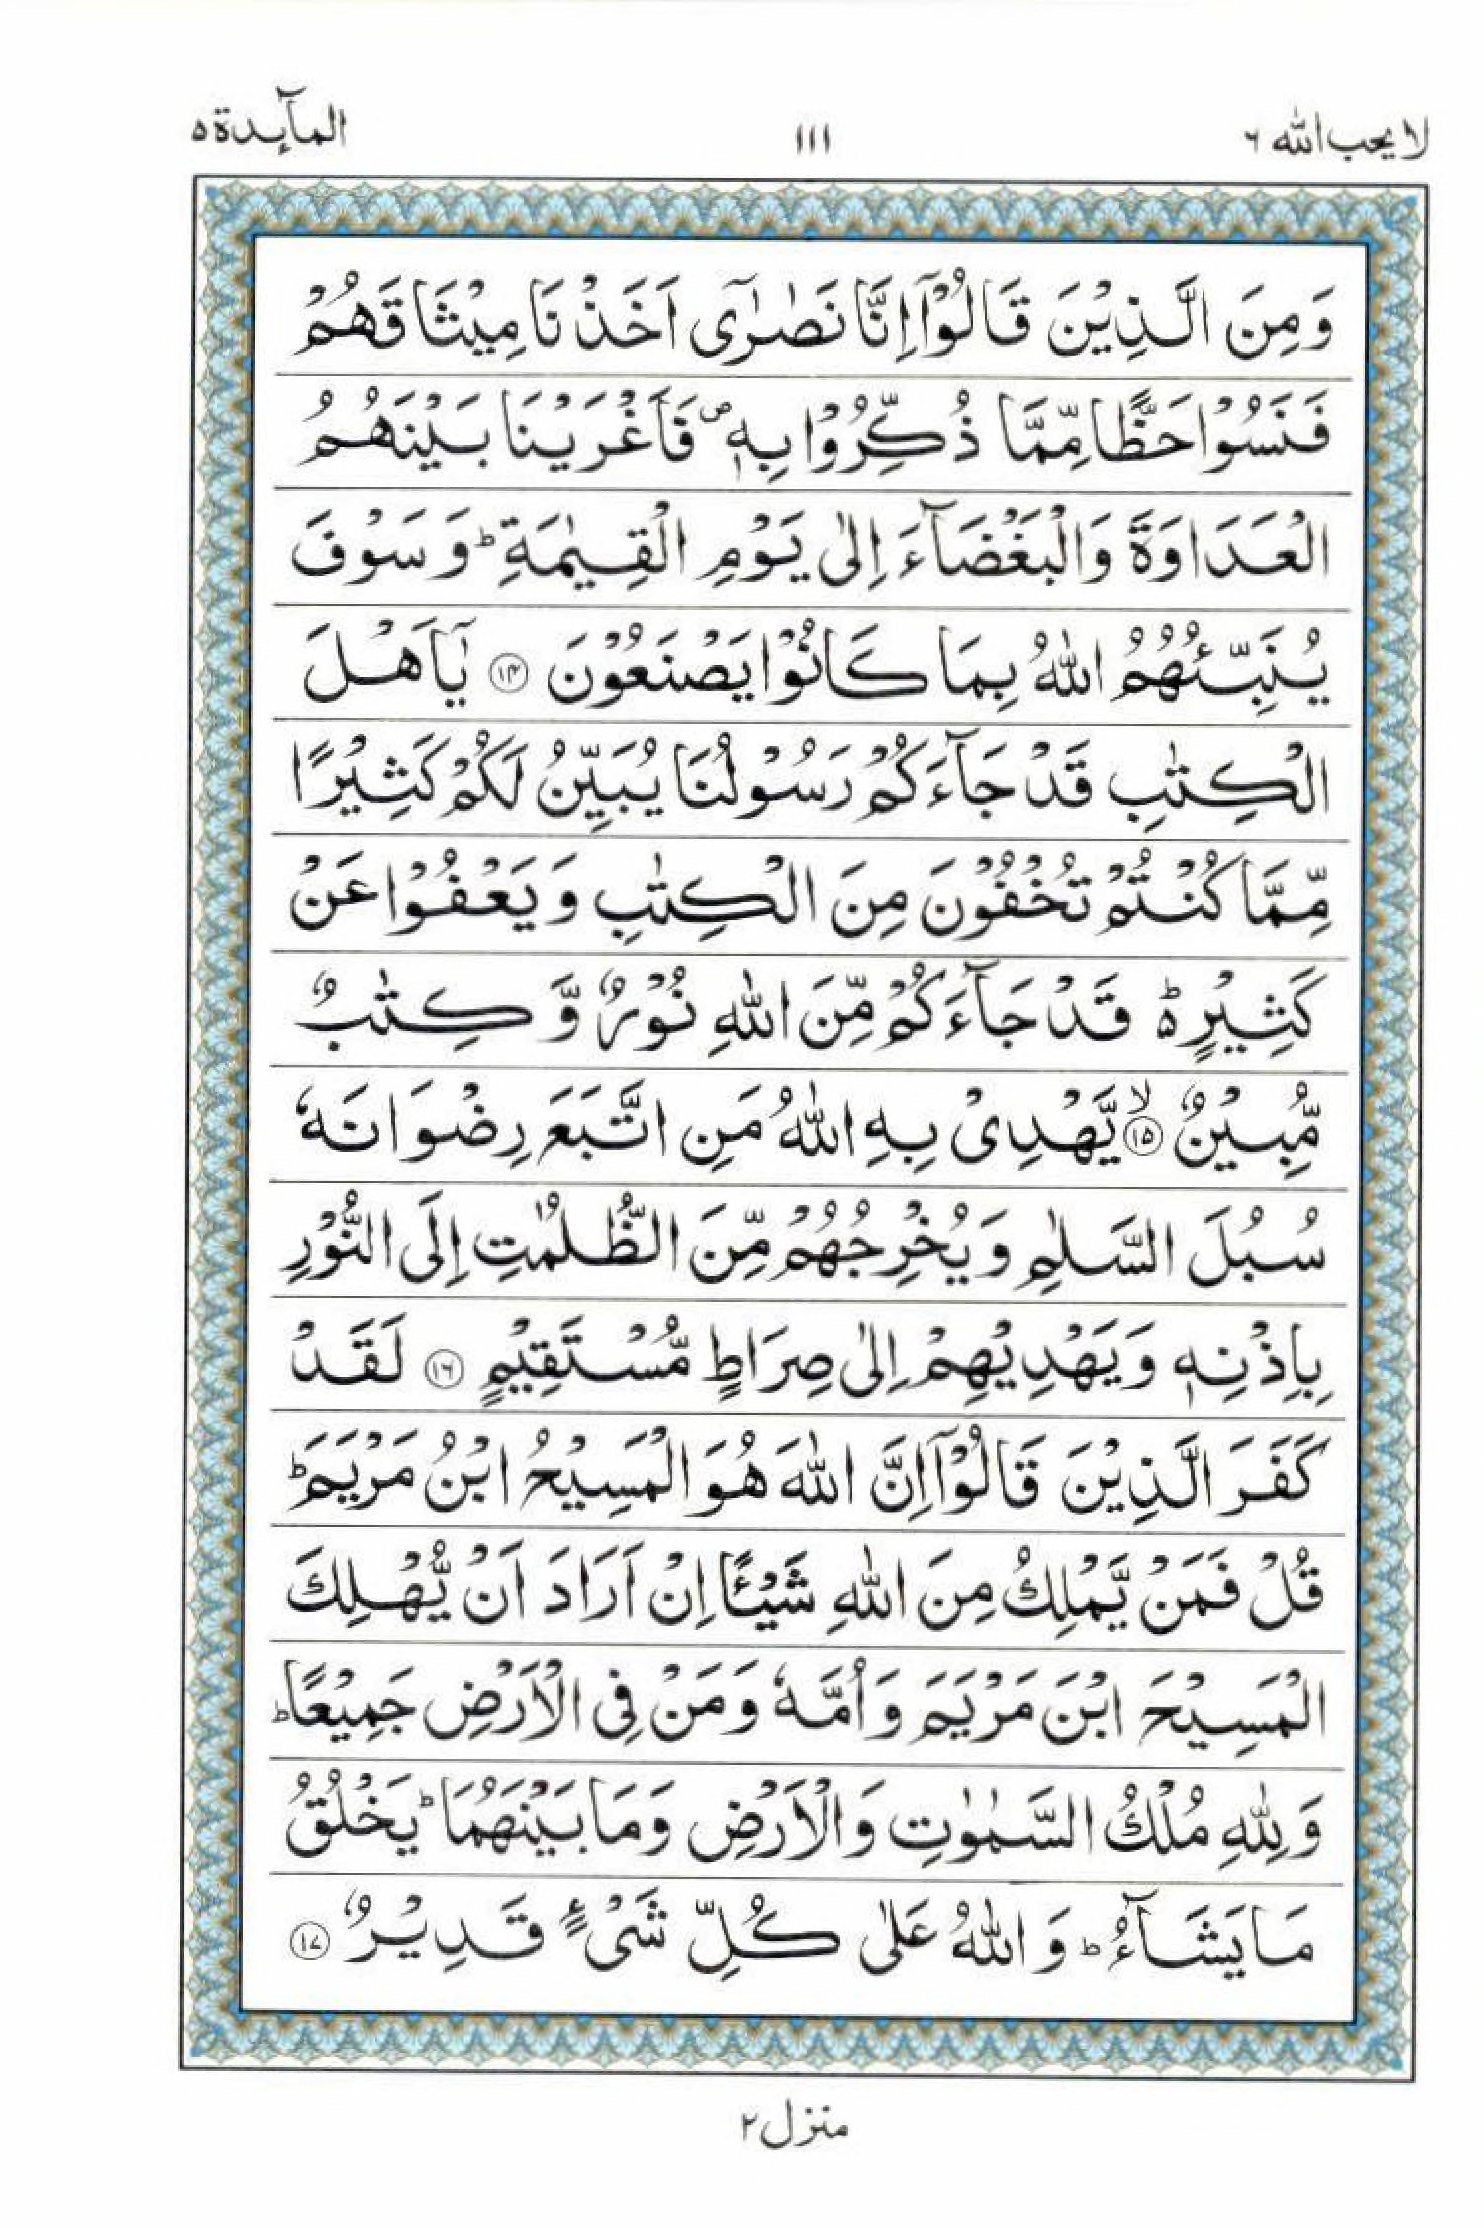 لا یحب الله ۶
۱۱۱
المآىِٕدة ۵
وَمِنَ الَّذِیْنَ قَالُوْۤا اِنَّا نَصٰرٰۤی اَخَذْنَا مِیْثَاقَهُمْ
فَنَسُوْا حَظًّا مِّمَّا ذُكِّرُوْا بِهٖ ۪ فَاَغْرَیْنَا بَیْنَهُمُ
الْعَدَاوَةَ وَالْبَغْضَآءَ اِلٰی یَوْمِ الْقِیٰمَةِ ؕ وَسَوْفَ
یُنَبِّئُهُمُ اللّٰهُ بِمَا كَانُوْا یَصْنَعُوْنَ ۝۱۴ یٰۤاَهْلَ
الْكِتٰبِ قَدْ جَآءَكُمْ رَسُوْلُنَا یُبَیِّنُ لَكُمْ كَثِیْرًا
مِّمَّا كُنْتُمْ تُخْفُوْنَ مِنَ الْكِتٰبِ وَیَعْفُوْا عَنْ
كَثِیْرٍ ؕ۬ قَدْ جَآءَكُمْ مِّنَ اللّٰهِ نُوْرٌ وَّكِتٰبٌ
مُّبِیْنٌ ۝۱۵ۙ یَّهْدِیْ بِهِ اللّٰهُ مَنِ اتَّبَعَ رِضْوَانَهٗ
سُبُلَ السَّلٰمِ وَیُخْرِجُهُمْ مِّنَ الظُّلُمٰتِ اِلَی النُّوْرِ
بِاِذْنِهٖ وَیَهْدِیْهِمْ اِلٰی صِرَاطٍ مُّسْتَقِیْمٍ ۝۱۶ لَقَدْ
كَفَرَ الَّذِیْنَ قَالُوْۤا اِنَّ اللّٰهَ هُوَ الْمَسِیْحُ ابْنُ مَرْیَمَ ؕ
قُلْ فَمَنْ یَّمْلِكُ مِنَ اللّٰهِ شَیْـًٔا اِنْ اَرَادَ اَنْ یُّهْلِكَ
الْمَسِیْحَ ابْنَ مَرْیَمَ وَاُمَّهٗ وَمَنْ فِی الْاَرْضِ جَمِیْعًا ؕ
وَلِلّٰهِ مُلْكُ السَّمٰوٰتِ وَالْاَرْضِ وَمَا بَیْنَهُمَا ؕ یَخْلُقُ
مَا یَشَآءُ ؕ وَاللّٰهُ عَلٰی كُلِّ شَیْءٍ قَدِیْرٌ ۝۱۷
منزل ۲